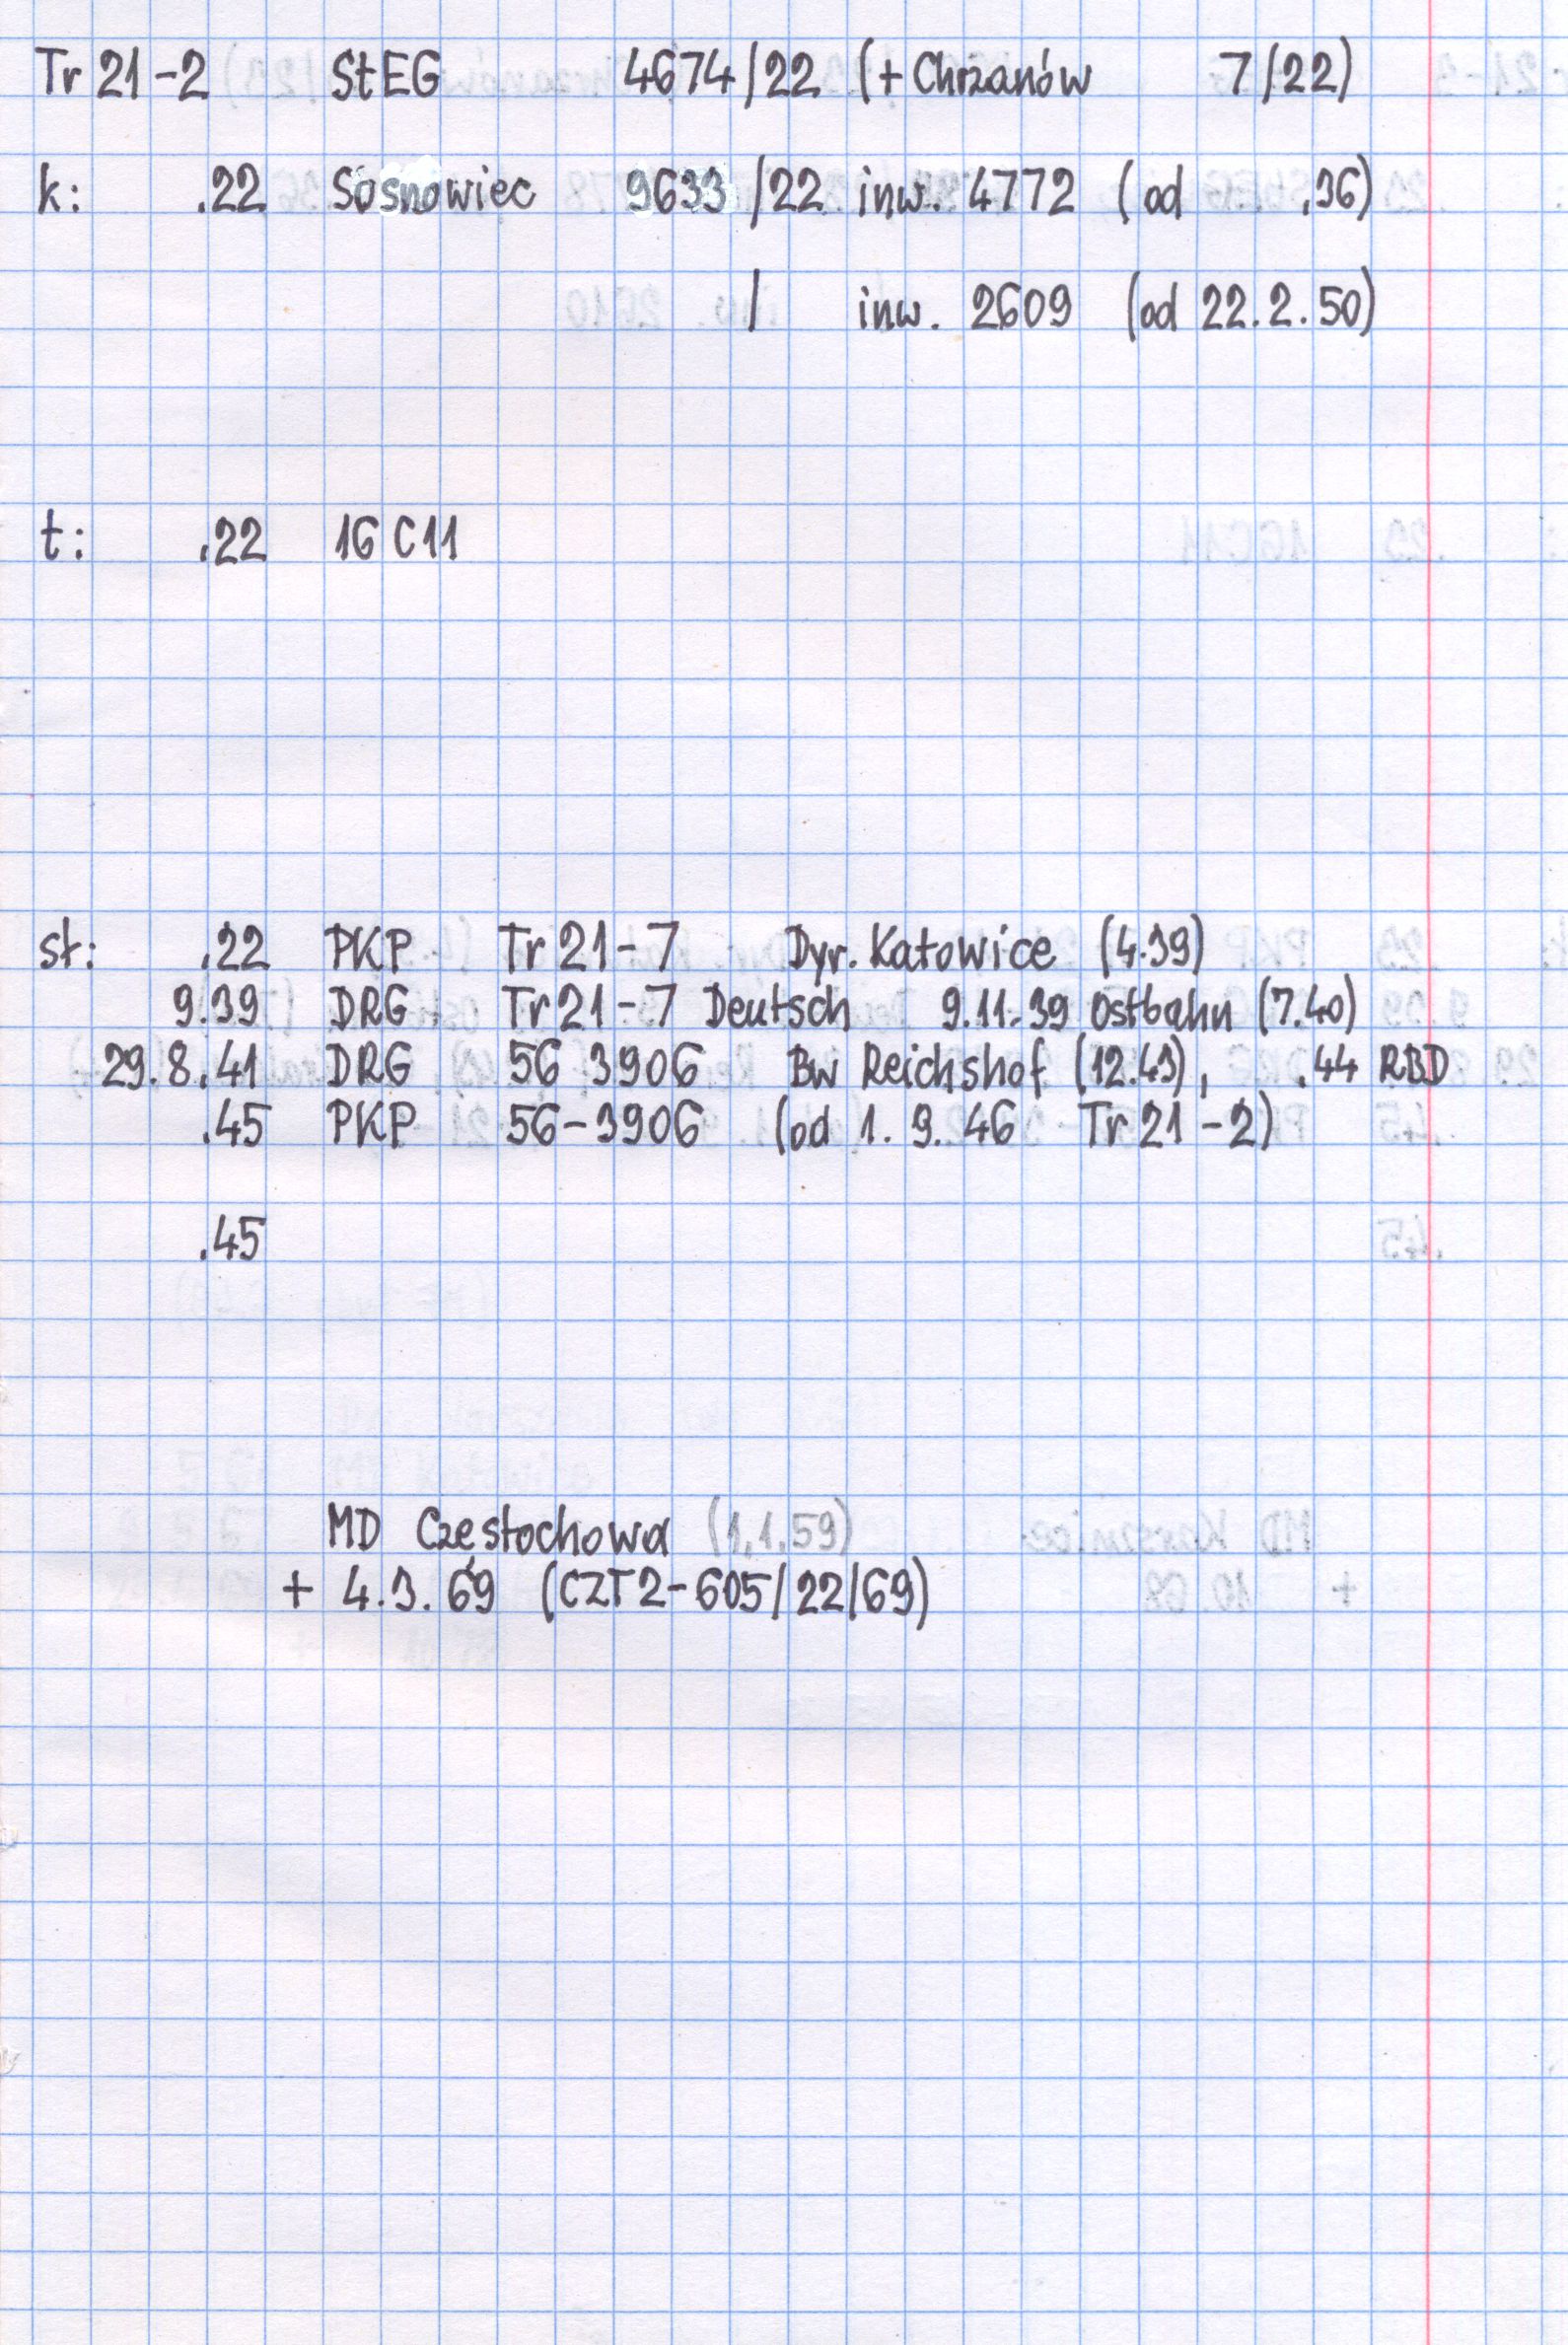 Tr 21-2 StEG 4674/22 (+ Chrzanów 7/22)
k: .22 Sosnowiec 9633/22 inw. 4772 (od .36)
/ inw. 2609 (od 22.2.50)
t: .22 16 C11
st: .22 PKP Tr 21-7 Dyr. Katowice (4.39)
9.39 DRG Tr 21-7 Deutsch 9.11.39 Ostbahn (7.40)
29.8.41 DRG 56 3906 Bw Reichshof (12.43), .44 RBD
.45 PKP 56-3906 (od 1.9.46 Tr 21-2)
.45
MD Częstochowa (1.1.59)
+ 4.3.69 (CZT2-605/22/69)